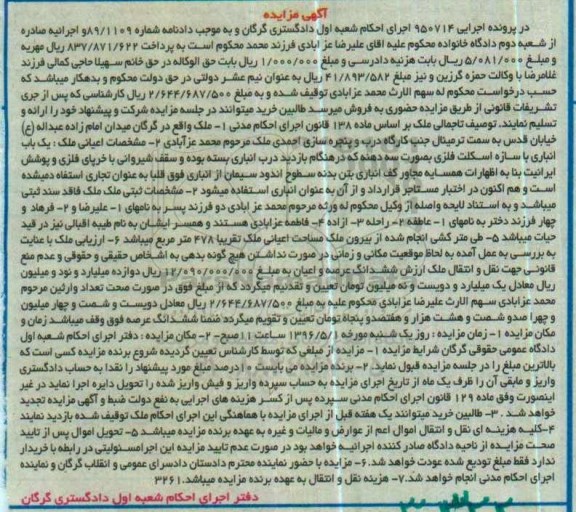 آگهی مزایده
در پرونده اجرایی ۹۵۰۷۱۴ اجرای احکام شعبه اول دادگستری گرگان و به موجب دادنامه شماره ۸۹/۱۱۰۹و اجرائیه صادره
از شعبه دوم دادگاه خانواده محکوم علیه اقای علیرضا عز ابادی فرزند محمد محکوم است به پرداخت ۸۳۷/۸۷۱/۶۲۲ ریال مهریه
و مبلغ ۵/۰۸۱/۰۰۰ ریال بابت هزینه دادرسی و مبلغ ۱/۰۰۰/۰۰۰ ریال بابت حق الوکاله در حق خانم سهیلا حاجی کمالی فرزند
غلامرضا با وکالت حمزه گرزین و نیز مبلغ ۴۱/۸۹۳/۵۸۲ ریال به عنوان نیم عشر دولتی در حق دولت محکوم و بدهکار میباشد که
حسب درخواست محکوم له سهم الارث محمد عزابادی توقیف شده و به مبلغ ۲/۶۴۴/۶۸۷/۵۰۰ ریال کارشناسی که پس از جری
تشریفات قانونی از طریق مزایده حضوری به فروش میرسد طالبین خرید میتوانند در جلسه مزایده شرکت و پیشنهاد خود را ارائه و
تسلیم نمایند. توصیف تاجمالی ملک بر اساس ماده ۱۳۸ قانون اجرای احکام مدنی ۱- ملک واقع در گرگان میدان امام زاده عبداله (ع)
خیابان قدس به سمت ترمینال جنب کارگاه درب و پنجره سازی احمدی ملک مرحوم محمد عزآبادی ۲- مشخصات اعیانی ملک : یک باب
انباری با سازه اسکلت فلزی بصورت سه دهنه که درهنگام بازدید درب انباری بسته بوده و سقف شیروانی با خرپای فلزی و پوشش
ایرانیت بنا به اظهارات همسایه مجاور کف انباری بتن بدنه سطوح اندود سیمان از انباری فوق قلبا به عنوان تجاری استفاه دمیشده
است و هم اکنون در اختیار مستاجر قرارداد و از آن به عنوان انباری استفاده میشود ۲- مشخصات ثبتی ملک ملک فاقد سند ثبتی
میباشد و به استناد لایحه واصله از وکیل محکوم له ورثه مرحوم محمد عز ابادی دو فرزند پسر به نامهای ۱- علیرضا و ۲- فرهاد و
چهار فرزند دختر به نامهای ۱- عاطفه ۲- راحله ۳- ازاده ۴- فاطمه عزابادی هستند و همسر ایشان به نام طیبه اقبالی نیز در قید
حیات میباشد ۵- طی متر کشی انجام شده از بیرون ملک مساحت اعیانی ملک تقریبا ۴۷۸ متر مربع میباشد ۶- ارزیابی ملک با عنایت
به بررسی به عمل آمده به لحاظ موقعیت مکانی و زمانی در صورت نداشتن هیچ گونه بدهی به اشخاص حقیقی و حقوقی و عدم منع
قانونی جهت نقل و انتقال ملک ارزش ششدانگ عرصه و اعیان به مبلغ ۱۲/۰۹۰/۰۰۰/۰۰۰ ریال دوازده میلیارد و نود و میلیون
ریال معادل یک میلیارد و دویست و نه میلیون تومان تعیین و تقدیم میگردد که از مبلغ فوق در صورت صحت تعداد وارثین مرحوم
محمد عزابادی سهم الارث علیرضا عزابادی محکوم علیه به مبلغ ۲/۶۴۴/۶۸۷/۵۰۰ ریال معادل دویست و شصت و چهار میلیون
و چهرا صدو شصت و هشت هزار و هفتصدو پنجاه تومان تعیین و تقویم میگردد ضمنا ششدانگ عرصه فوق وقف میباشد زمان و
مکان مزایده ۱- زمان مزایده : روز یک شنبه مورخه ۱۳۹۶/۵/۱ ساعت ۱۱صبح- ۲- مکان مزایده : دفتر اجرای احکام شعبه اول
دادگاه عمومی حقوقی گرگان شرایط مزایده ۱- مزایده از مبلغی که توسط کارشناس تعیین گردیده شروع برنده مزایده کسی است که
بالاترین مبلغ را در جلسه مزایده قبول نماید ۲- برنده مزایده می بایست ۱۰ درصد مبلغ مورد پیشنهاد را نقدا به حساب دادگستری
واریز و مابقی آن را ظرف یک ماه از تاریخ اجرای مزایده به حساب سپرده واریز و فیش واریز شده را تحویل دایره اجرا نماید در غیر
اینصورت وفق ماده ۱۲۹ قانون اجرای احکام مدنی سپرده پس از کسر هزینه های اجرایی به نفع دولت ضبط و آگهی مزایده تجدید
خواهد شد . ۳- طالبین خرید میتوانند یک هفته قبل از اجرای مزایده با هماهنگی این اجرای احکام ملک توقیف شده بازدید نمایند
۴-کلیه هزینه ای نقل و انتقال اموال اعم از عوارض و مالیات و غیره به عهده برنده مزایده میباشد ۵- تحویل اموال پس از تایید
صحت مزایده از ناحیه دادگاه صادر کننده اجرائیه خواهد بود در صورت عدم تایید مزایده این اجرامسئولیتی در رابطه با خریدار
ندارد فقط مبلغ تودیع شده عودت خواهد شد. ۶- مزایده با حضور نماینده محترم دادستان دادسرای عمومی و انقلاب گرگان و نماینده
اجرای احکام مدنی انجام خواهد شد.۷- هزینه نقل و انتقال به عهده برنده مزایده میباشد.۳۲۶۱
دفتر اجرای احکام شعبه اول دادگستری گرگان